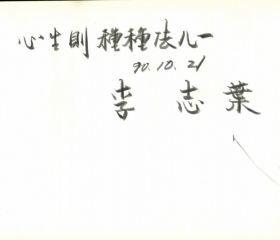 心生則種種法
90.10.21
李志葉